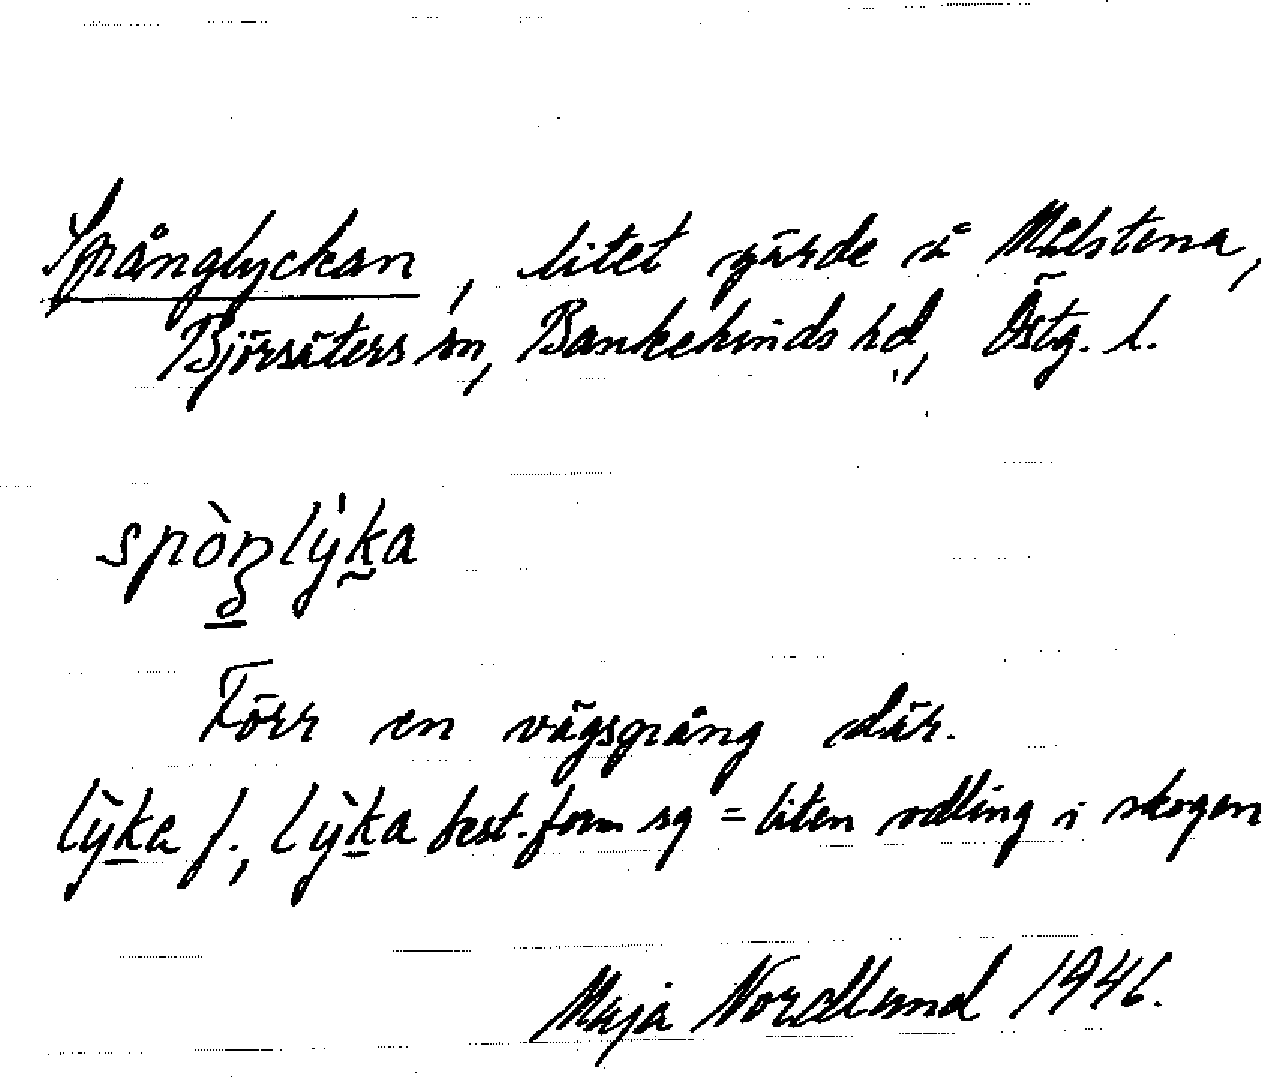 Spånglyckan, litet gärde å Målstena,
Björsäters sn, Bankekinds hd, Östg. l.
spòŋlýka
Förr en vägspång där.
lỳka f., lỳka best. form sg = liten odling i skogen
Maja Nordlund 1946.